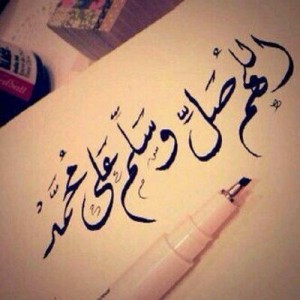 اللهم صَلِّ وَسَلِّم عَلىٰ مُحَمَّدْ